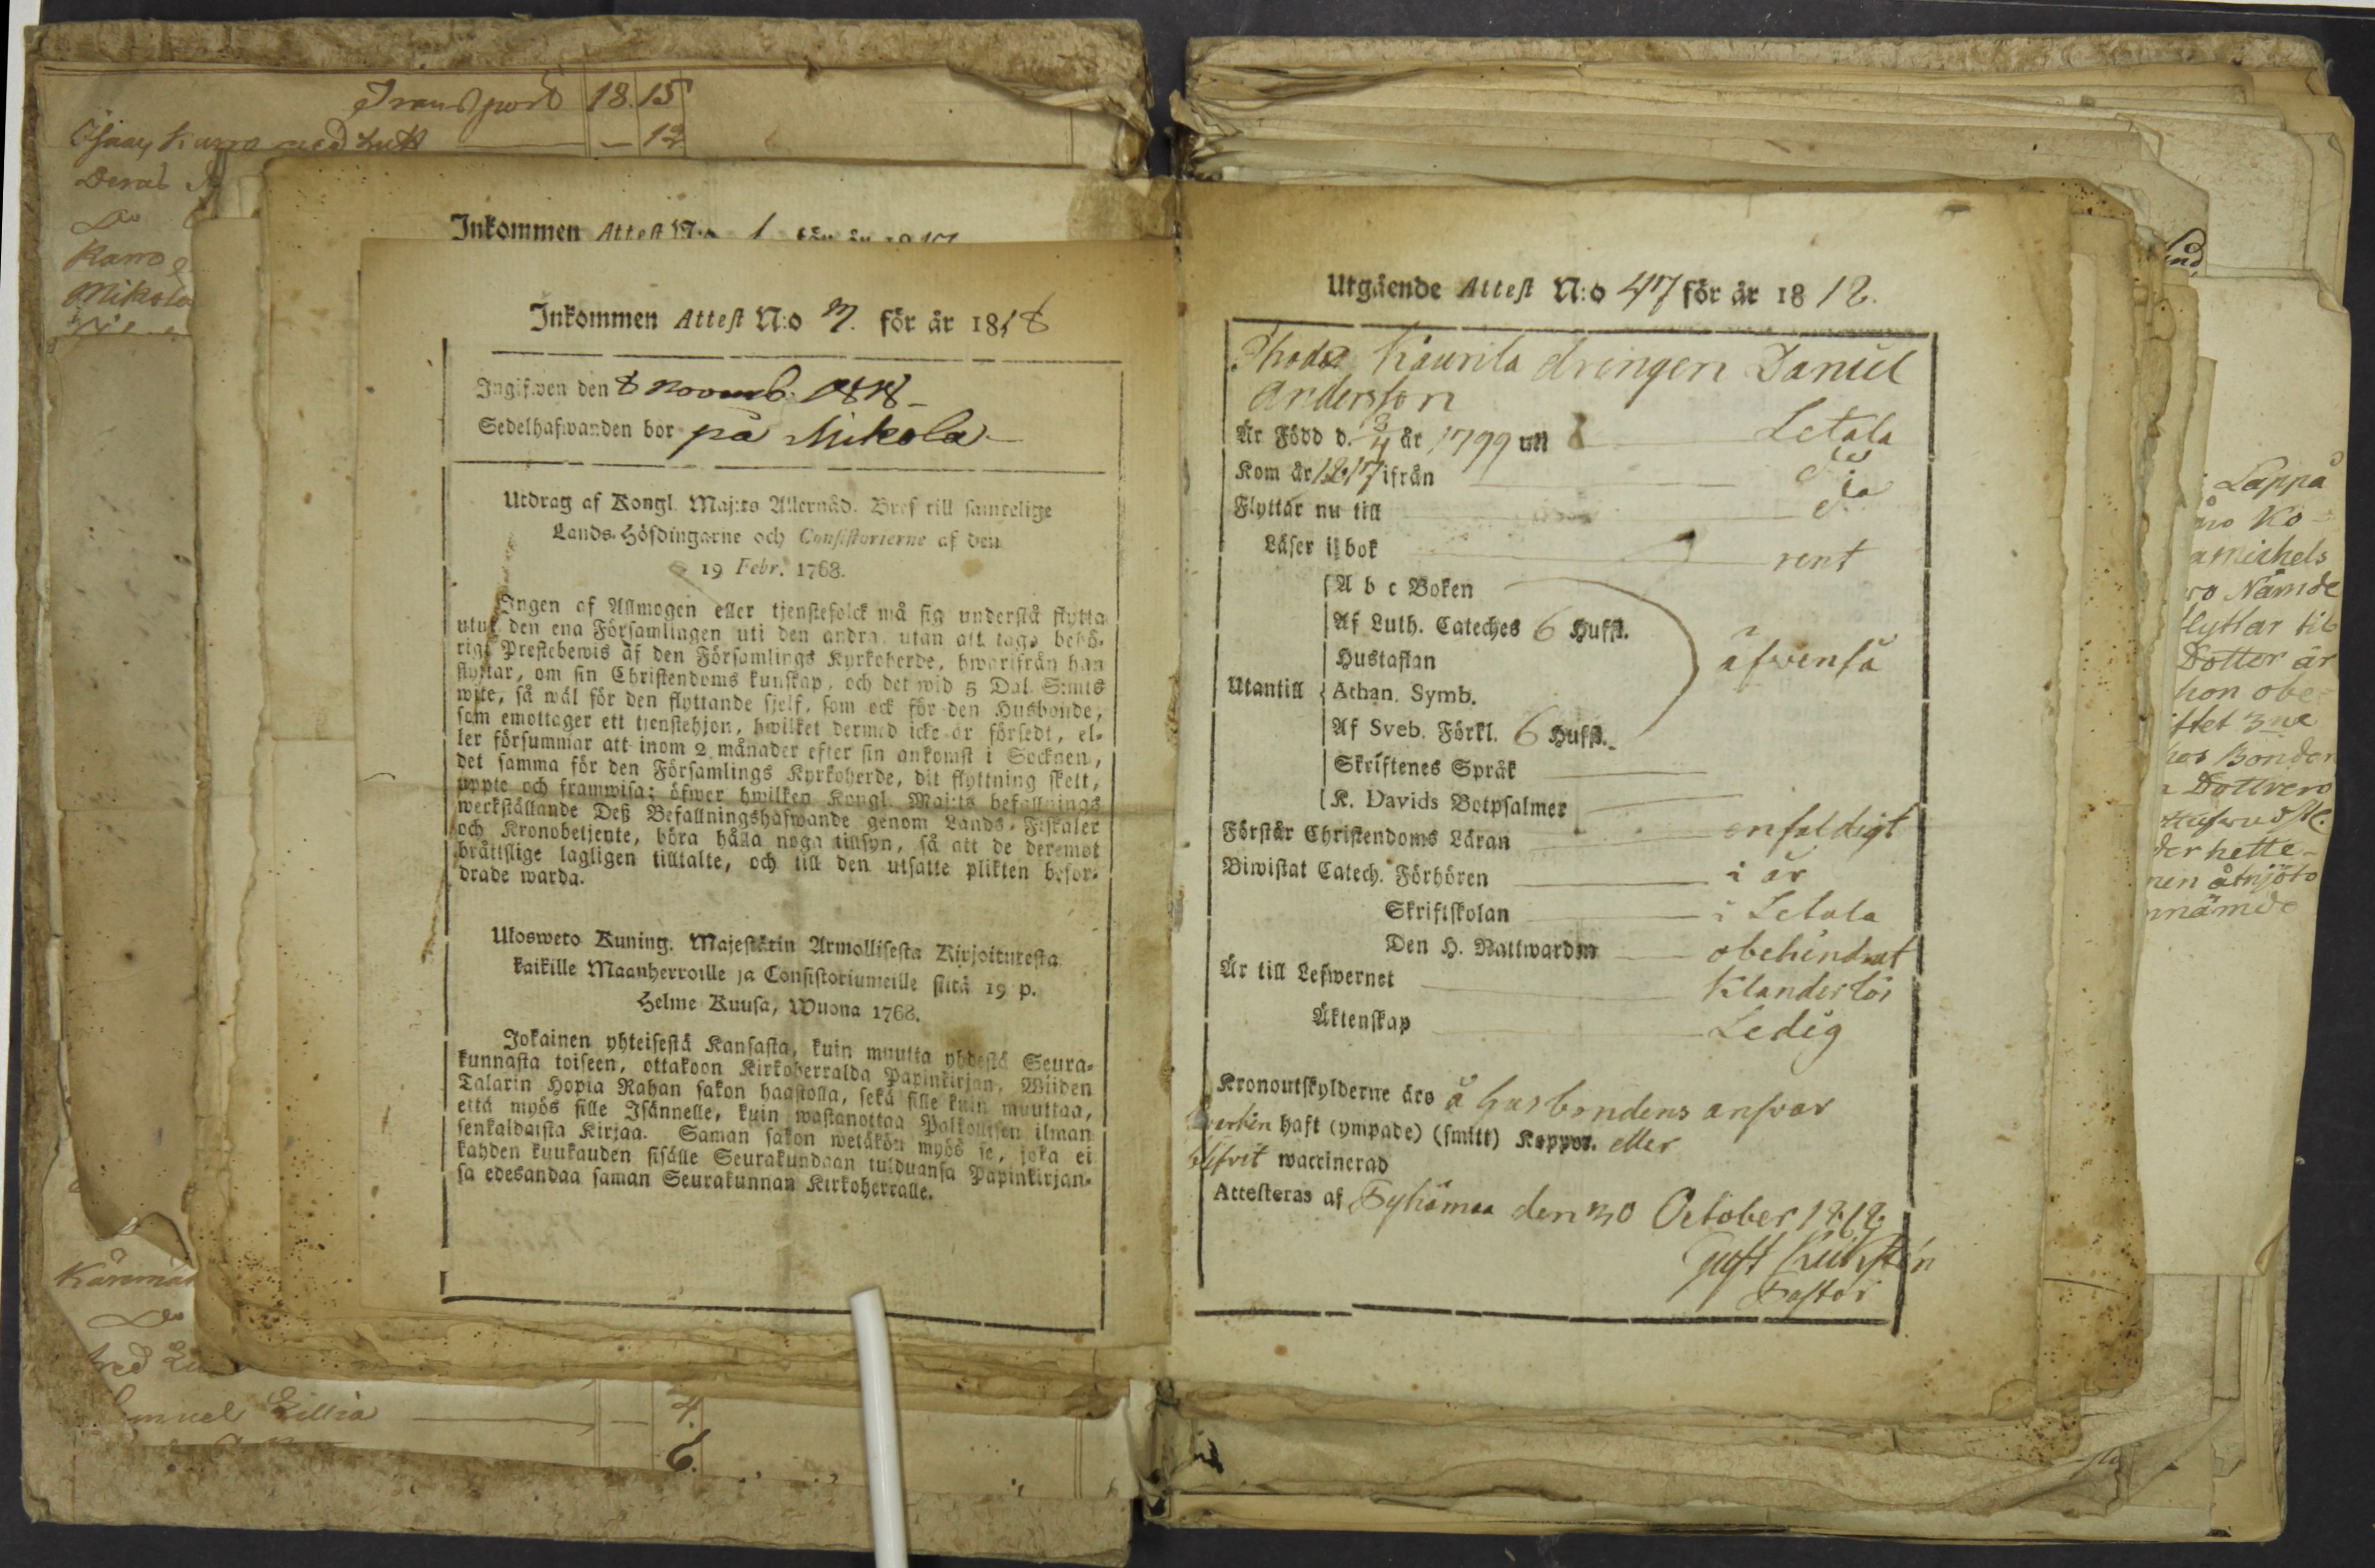 Transport 18.15
12
Ramo
Mikola
Inkommen Attest N:o 1 för år 1817
Inkommen Attest N:o 7. för år 1818
Ingifwen den 8 Novemb. 1818
Sedelhafwanden bor på Mikola
Utdrag af Kongl. Maj:ts Allernåd. Bref till samtelige
Lands-Höfdingarne och Consistorierne af den
19 Febr. 1768.
Ingen af Allmogen eller tjenstefolck må sig understå flytta
utur den ena Församlingen uti den andra, utan att taga behö-
rigt Prestebewis af den Församlings Kyrkoherde, hwarifrån han
flyttar, om sin Christendoms kunskap, och det wid 5 Dal. S:mts
wite, så wäl för den flyttande sjelf, som ock för den Husbonde,
som emottager ett tjenstehjon, hwilket dermed icke är försedt, el-
ler försummar att inom 2 månader efter sin ankomst i Socknen,
det samma för den Församlings Kyrkoherde, dit flyttning skett,
uppte och framwisa; öfwer hwilken Kongl. Maj:ts befallnings
werkställande Deß Befallningshafwande genom Lands-Fiskaler
och Kronobetjente, böra hålla noga tillsyn, så att de deremot
bråttslige lagligen tilltalte, och till den utsatte plikten befor-
drade warda.
Ulosweto Kuning. Majestätin Armollisesta Kirjoituresta
kaikille Maanherroille ja Consistoriumeille siitä 19 p.
Helme Kuusa, Wuona 1768.
Jokainen yhteisestä Kansasta, kuin muutta yhdestä Seura-
kunnasta toiseen, ottakoon Kirkoherralda Papinkirjan, Wiiden
Talarin Hopia Rahan sakon haastolla, sekä sille kuin muuttaa,
että myös sille Isännelle, kuin wastanottaa Palkollisen ilman
senkaldaista Kirjaa. Saman sakon wetäkön myös se, joka ei
kahden kuukauden sisälle Seurakundaan tulduansa Papinkirjan-
sa edesandaa saman Seurakunnan Kirkoherralle.
Samuel Lillia 4.
6.
Utgående Attest N:o 47 för år 1818.
Kaurila drängen Daniel
Andersson
Är Född d. 3/4 år 1799 uti Letala
Kom år 1817 ifrån do
Flyttar nu till do
Läser i bok rent
A b c Boken
Af Luth. Cateches 6 Huffst.
Hustaflan äfwenså
Utantill Athan. Symb.
Af Sveb. Förkl. 6 Huffst.
Skriftenes Språk
K. Davids Botpsalmer
Förstår Christendoms Läran enfaldigt
Biwistat Catech. Förhören i år
Skriftskolan i Letala
Den H. Nattwarden obehindrat
Är till Lefwernet Klanderlös
Äktenskap Ledig
Kronoutskylderne äro å husbondens ansvar
haft (ympade) (smitt) Koppor. eller
blifvit waccinerad
Attesteras af Pyhämaa den 30 October 1818.
Pastor
Lappå
Ko-
michels
Nämde
flyttar til
Dotter är
hon obe-
Bonden
hette
åtnjöto
nämde